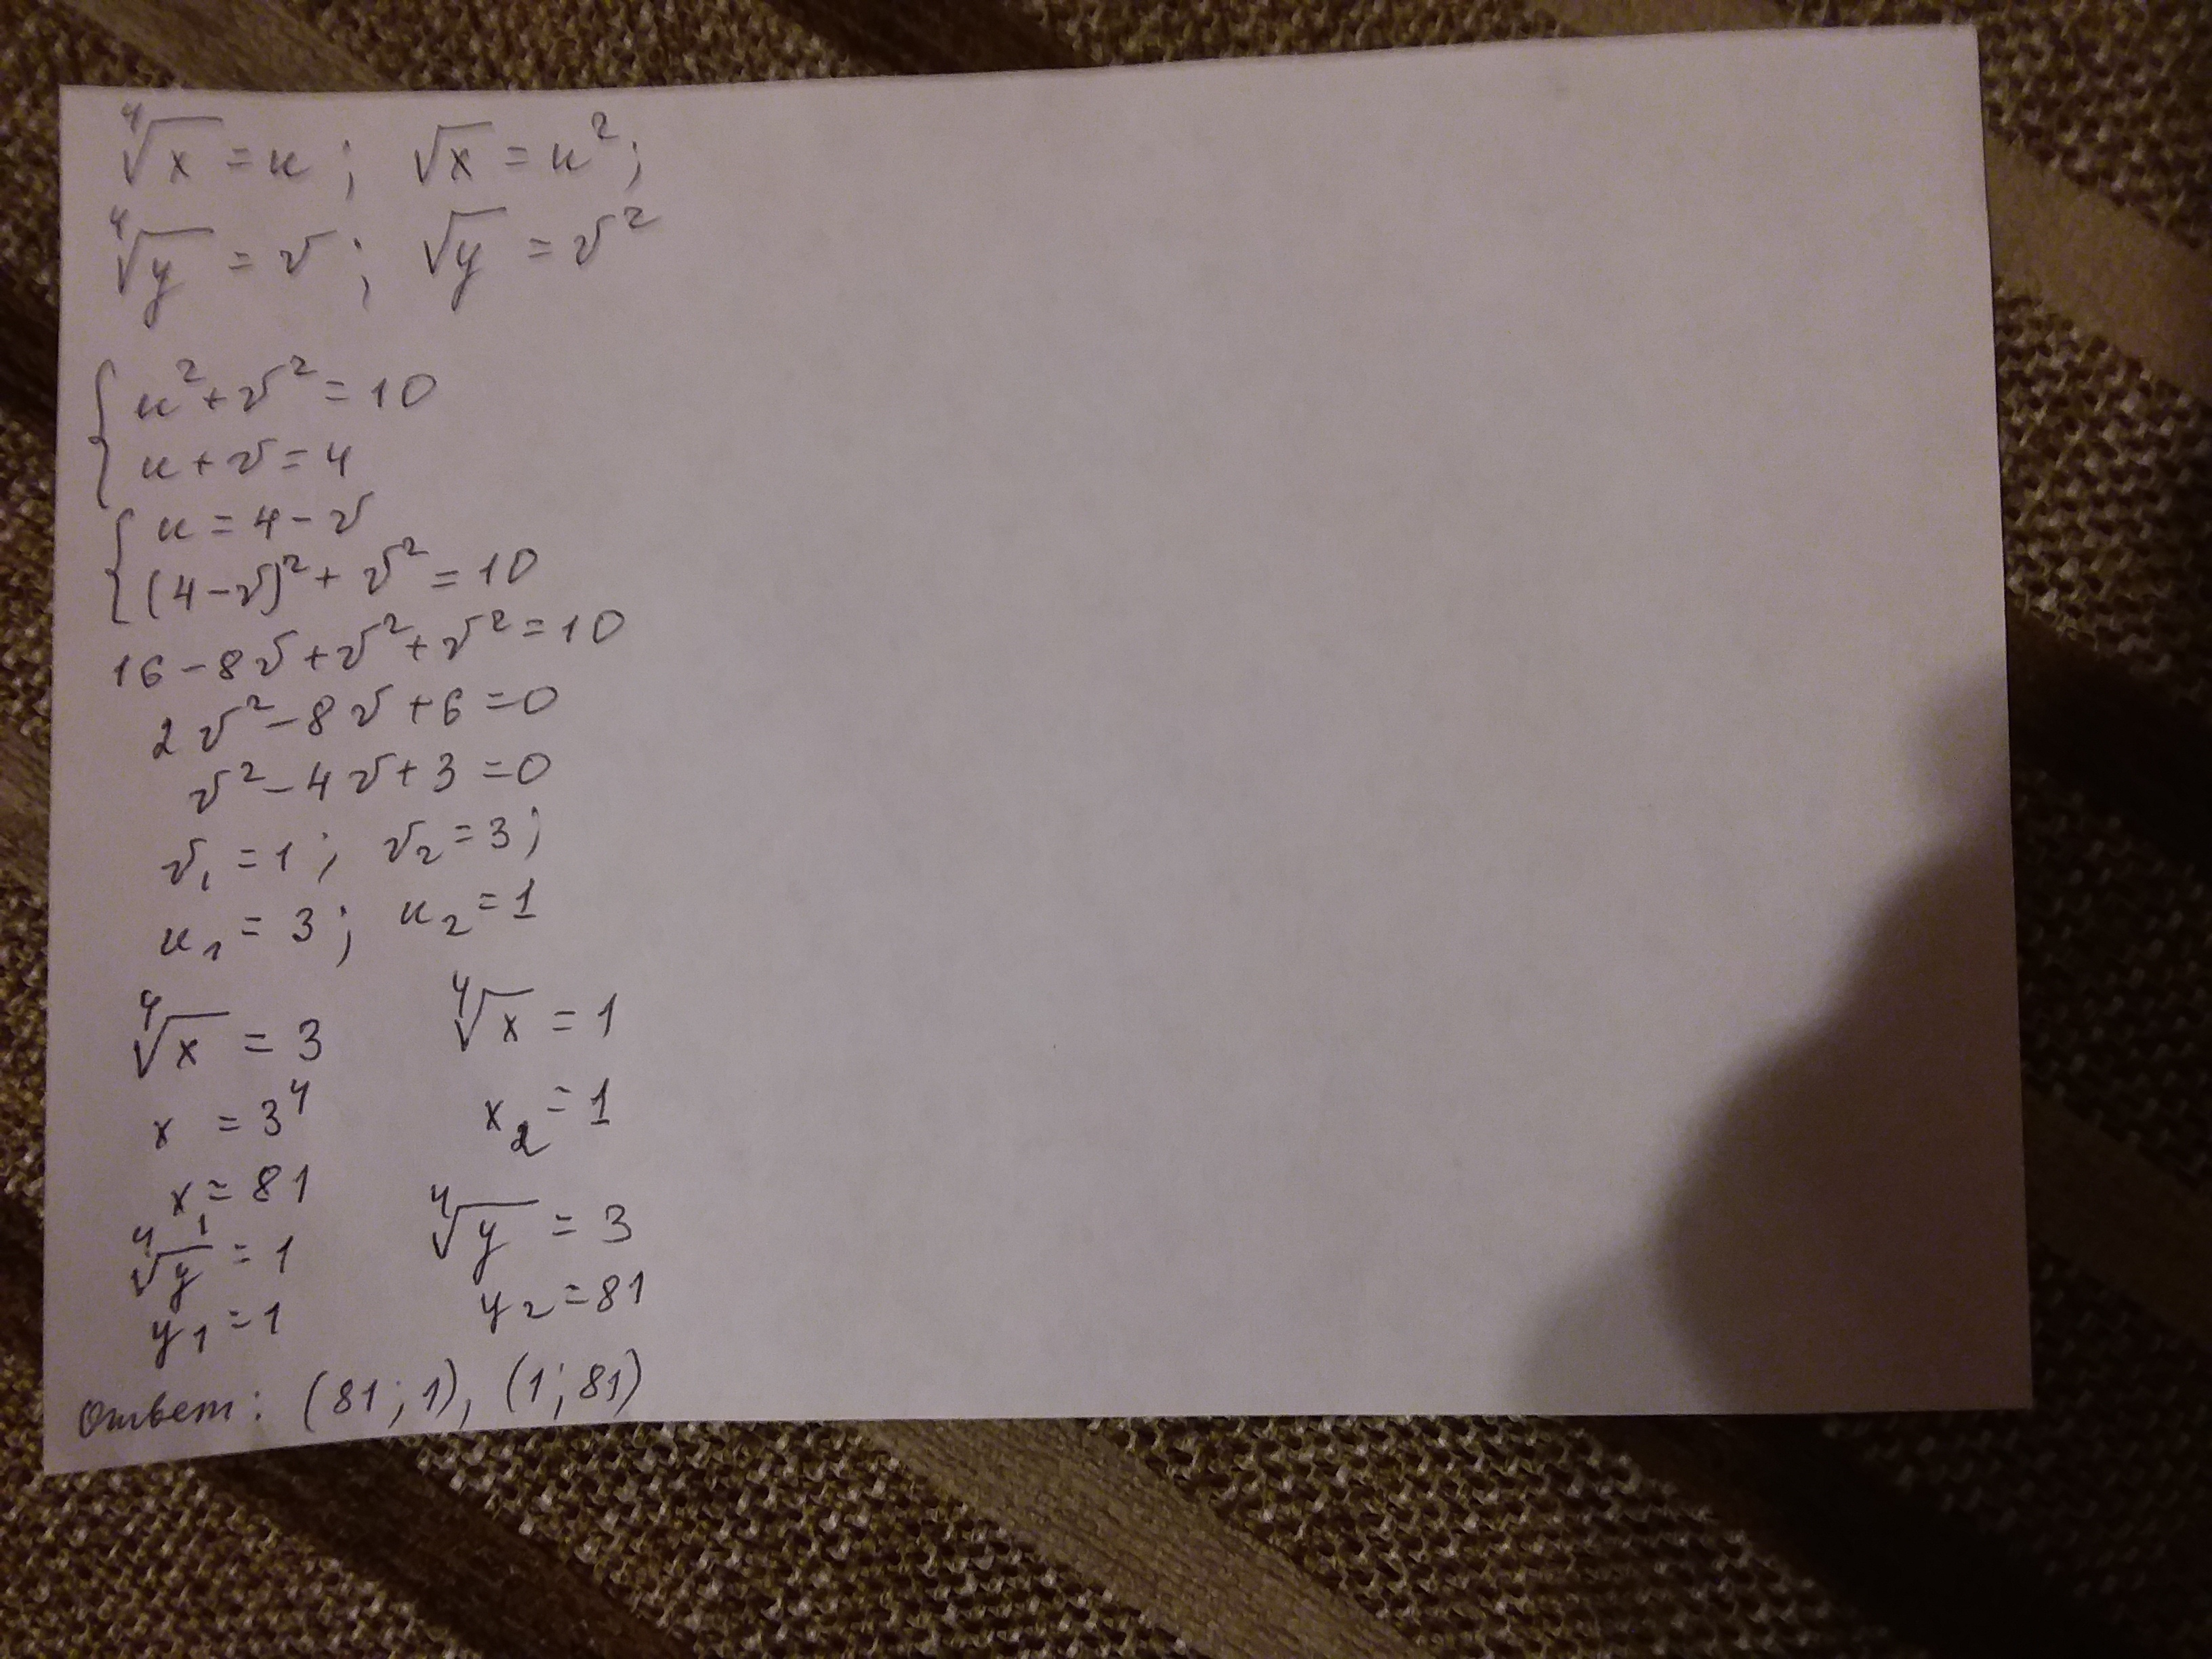 ⁴√x = u ; √x = u² ;
⁴√y = v ; √y = v²
{ u² + v² = 10
u + v = 4
{ u = 4 - v
(4 - v)² + v² = 10
16 - 8v + v² + v² = 10
2v² - 8v + 6 = 0
v² - 4v + 3 = 0
v₁ = 1 ; v₂ = 3 ;
u₁ = 3 ; u₂ = 1
⁴√x = 3 ⁴√x = 1
x = 3⁴ x₂ = 1
x₁ = 81 ⁴√y = 3
⁴√y = 1 y₂ = 81
y₁ = 1
Ответ: (81 ; 1), (1 ; 81)